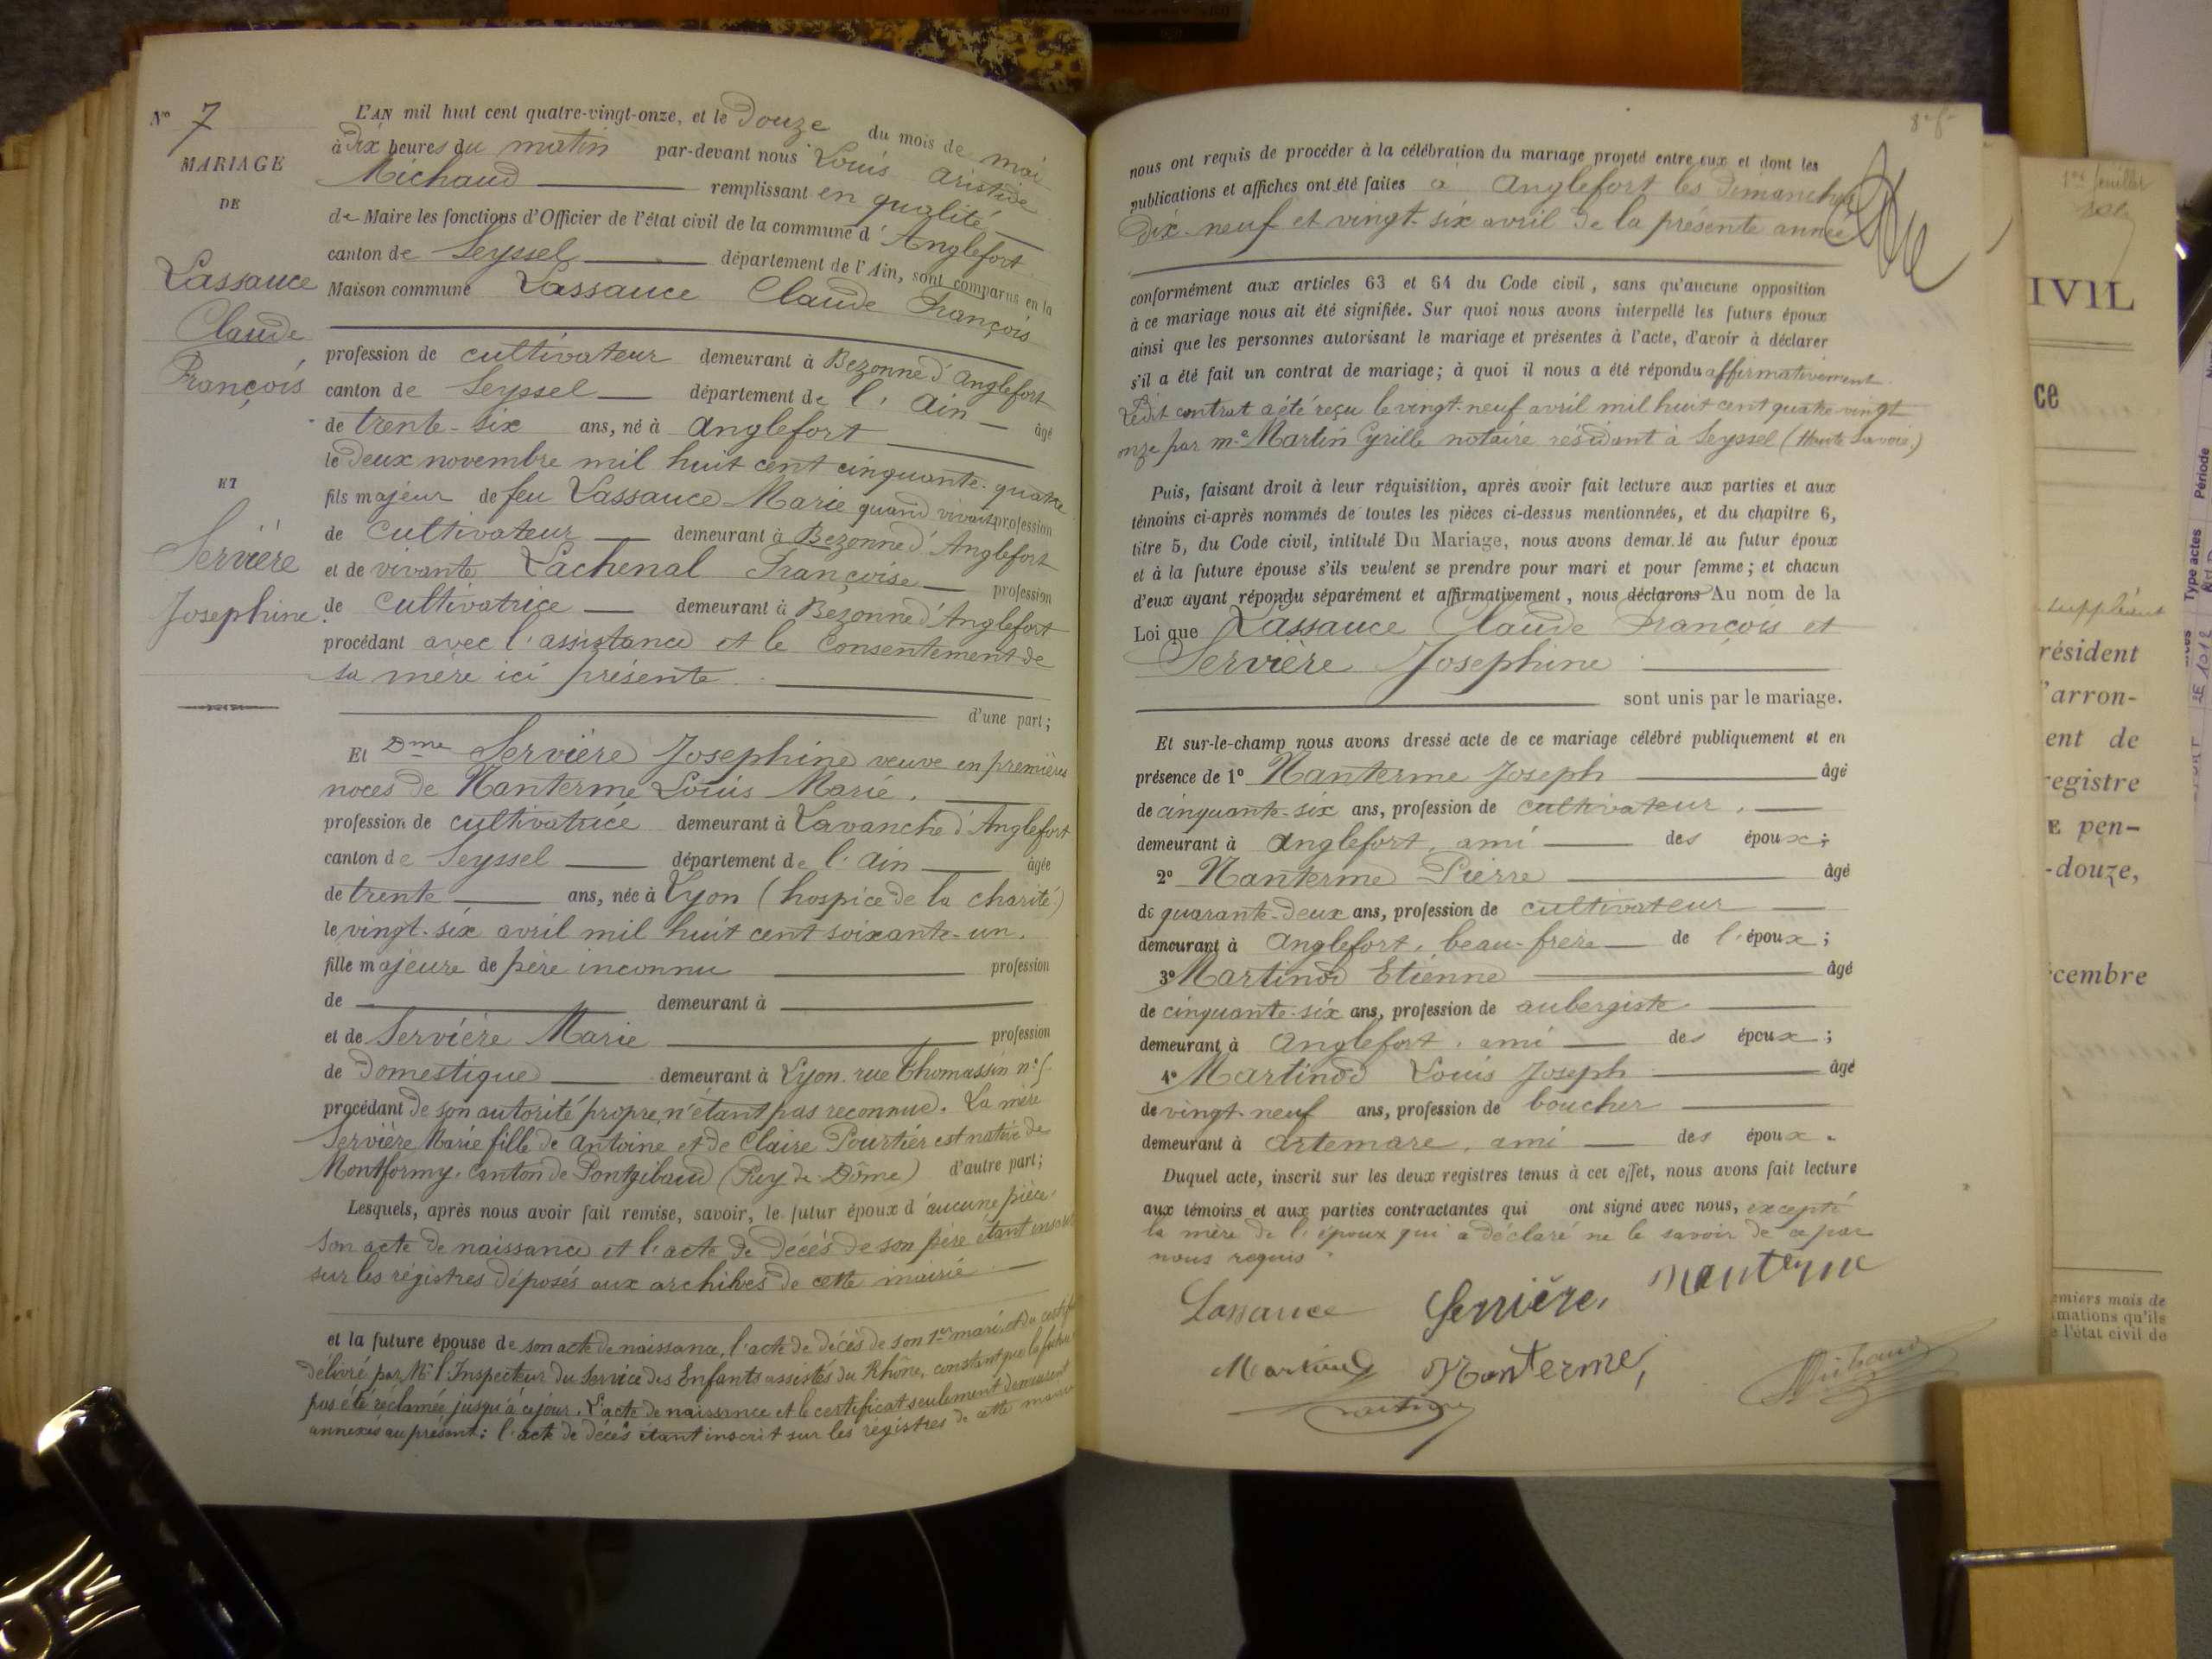 N° 7
MARIAGE
DE
Lassauce
Claude
François
ET
Servière
Josephine.
L'AN mil huit cent quatre-vingt-onze, et le Douze du mois de mai
à Dix heures du matin par-devant nous Louis Aristide
Michaud remplissant en qualité
de Maire les fonctions d'Officier de l'état civil de la commune d'Anglefort
canton de Seyssel département de l'Ain, sont comparus en la
Maison commune Lassauce Claude François
profession de cultivateur demeurant à Bezonne d'Anglefort
canton de Seyssel département de l'Ain âgé
de trente-six ans, né à Anglefort
le Deux novembre mil huit cent cinquante-quatre
fils majeur de feu Lassauce Marie quand vivait profession
de Cultivateur demeurant à Bezonne d'Anglefort
et de vivante Lachenal Françoise profession
de Cultivatrice demeurant à Bezonne d'Anglefort
procédant avec l'assistance et le consentement de
sa mère ici présente
d'une part;
Et Dme Servière Josephine veuve en premières
noces de Nanterme Louis Marie.
profession de cultivatrice demeurant à Lavanche d'Anglefort
canton de Seyssel département de l'Ain âgée
de trente ans, née à Lyon (hospice de la charité)
le vingt-six avril mil huit cent soixante-un.
fille majeure de père inconnu profession
de demeurant à
et de Servière Marie profession
de Domestique demeurant à Lyon. rue Thomassin n°
procédant de son autorité propre, n'étant pas reconnue. La mère
Servière Marie fille de Antoine et de Claire Pourtier est native de
Montformy, canton de Pontgibaud (Puy-de-Dôme) d'autre part;
Lesquels, après nous avoir fait remise, savoir, le futur époux d'aucune pièce,
son acte de naissance et l'acte de Décès de son père étant inscrits
sur les régistres déposés aux archives de cette mairie
et la future épouse de son acte de naissance, l'acte de décès de son 1er mari, et du certificat
délivré par Mr l'Inspecteur du Service des Enfants assistés du Rhône, constant que la future
pas été réclamée jusqu'à ce jour. L'acte de naissance et le certificat seulement demeurent
annexés au présent: l'acte de décès étant inscrit sur les régistres de cette mairie
8e f
nous ont requis de procéder à la célébration du mariage projeté entre eux et dont les
publications et affiches ont été faites à Anglefort les Dimanches
Dix-neuf et vingt-six avril de la présente année
conformément aux articles 63 et 64 du Code civil, sans qu'aucune opposition
à ce mariage nous ait été signifiée. Sur quoi nous avons interpellé les futurs époux
ainsi que les personnes autorisant le mariage et présentes à l'acte, d'avoir à déclarer
s'il a été fait un contrat de mariage; à quoi il nous a été répondu affirmativement.
Ledit contrat a été reçu le vingt-neuf avril mil huit cent quatre-vingt
onze par m.e Martin Cyrille notaire résidant à Seyssel (Haute Savoie)
Puis, faisant droit à leur réquisition, après avoir fait lecture aux parties et aux
témoins ci-après nommés de toutes les pièces ci-dessus mentionnées, et du chapitre 6,
titre 5, du Code civil, intitulé Du Mariage, nous avons demandé au futur époux
et à la future épouse s'ils veulent se prendre pour mari et pour femme; et chacun
d'eux ayant répondu séparément et affirmativement, nous déclarons Au nom de la
Loi que Lassauce Claude François et
Servière Josephine
sont unis par le mariage.
Et sur-le-champ nous avons dressé acte de ce mariage célébré publiquement et en
présence de 1° Nanterme Joseph âgé
de cinquante-six ans, profession de cultivateur.
demeurant à Anglefort, ami des époux;
2° Nanterme Pierre âgé
de quarante-deux ans, profession de cultivateur
demeurant à Anglefort, beau-frere de l'époux;
3° Martinod Etienne âgé
de cinquante-six ans, profession de aubergiste
demeurant à Anglefort, ami des époux;
4° Martinod Louis Joseph âgé
de vingt-neuf ans, profession de boucher
demeurant à Artemare, ami des époux.
Duquel acte, inscrit sur les deux registres tenus à cet effet, nous avons fait lecture
aux témoins et aux parties contractantes qui ont signé avec nous, excepté
la mère de l'époux qui a déclaré ne le savoir de ce par
nous requis
Lassauce Servière, Nanterme
Martinod Nanterme,
Martinod Michaud
1er feuillet
IVIL
ce
suppléant
résident
'arron-
ent de
registre
E pen-
-douze,
cembre
emiers mois de
mations qu'ils
e l'état civil de
Type actes Période